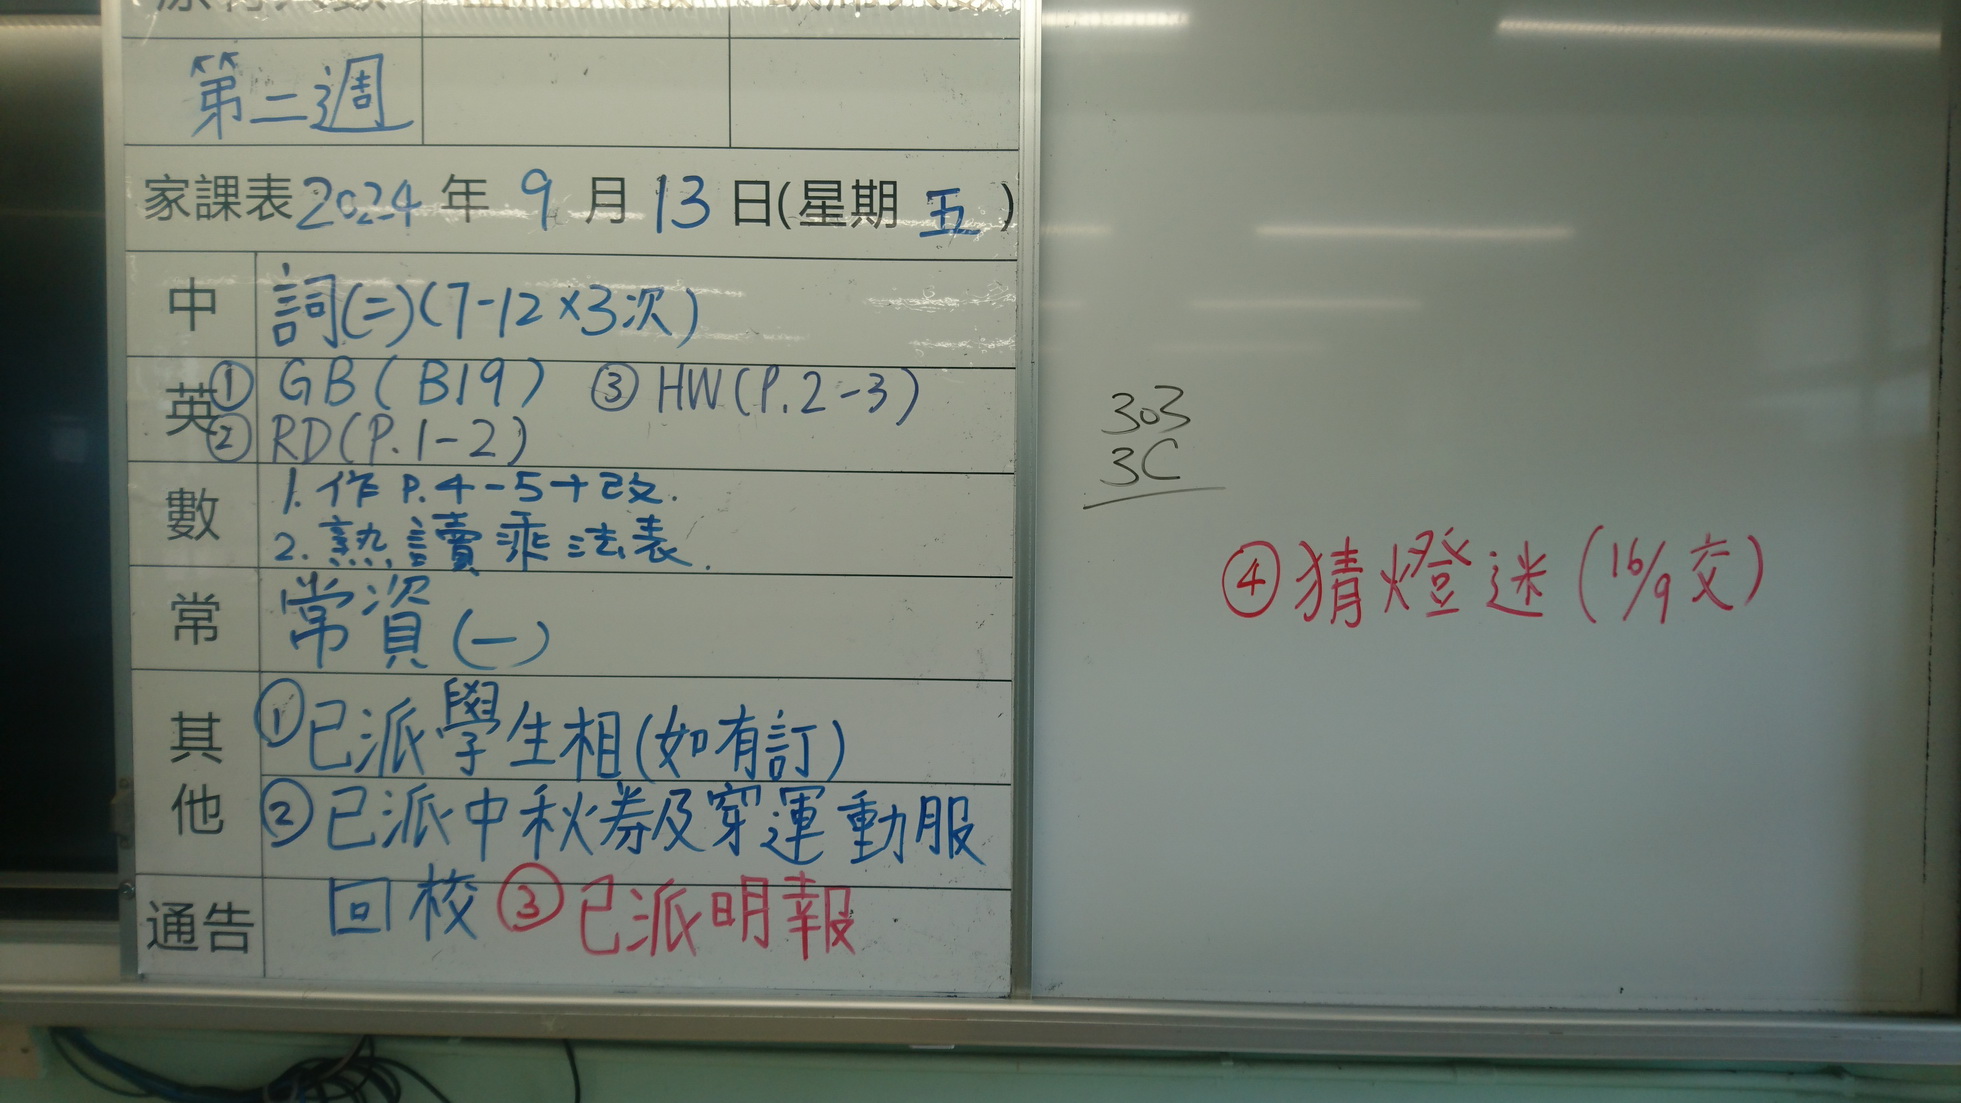 第二週
家課表 2024 年 9 月 13 日(星期 五)
中 詞(二)(7-12×3次)
英 ① GB(B19) ③ HW(P.2-3)
② RD(P.1-2)
數 1. 作 P.4-5+改.
2. 熟讀乘法表.
常 常資(一)
其他 ①已派學生相(如有訂)
②已派中秋券及穿運動服
通告 回校 ③已派明報
303
3C
④猜燈迷(16/9交)